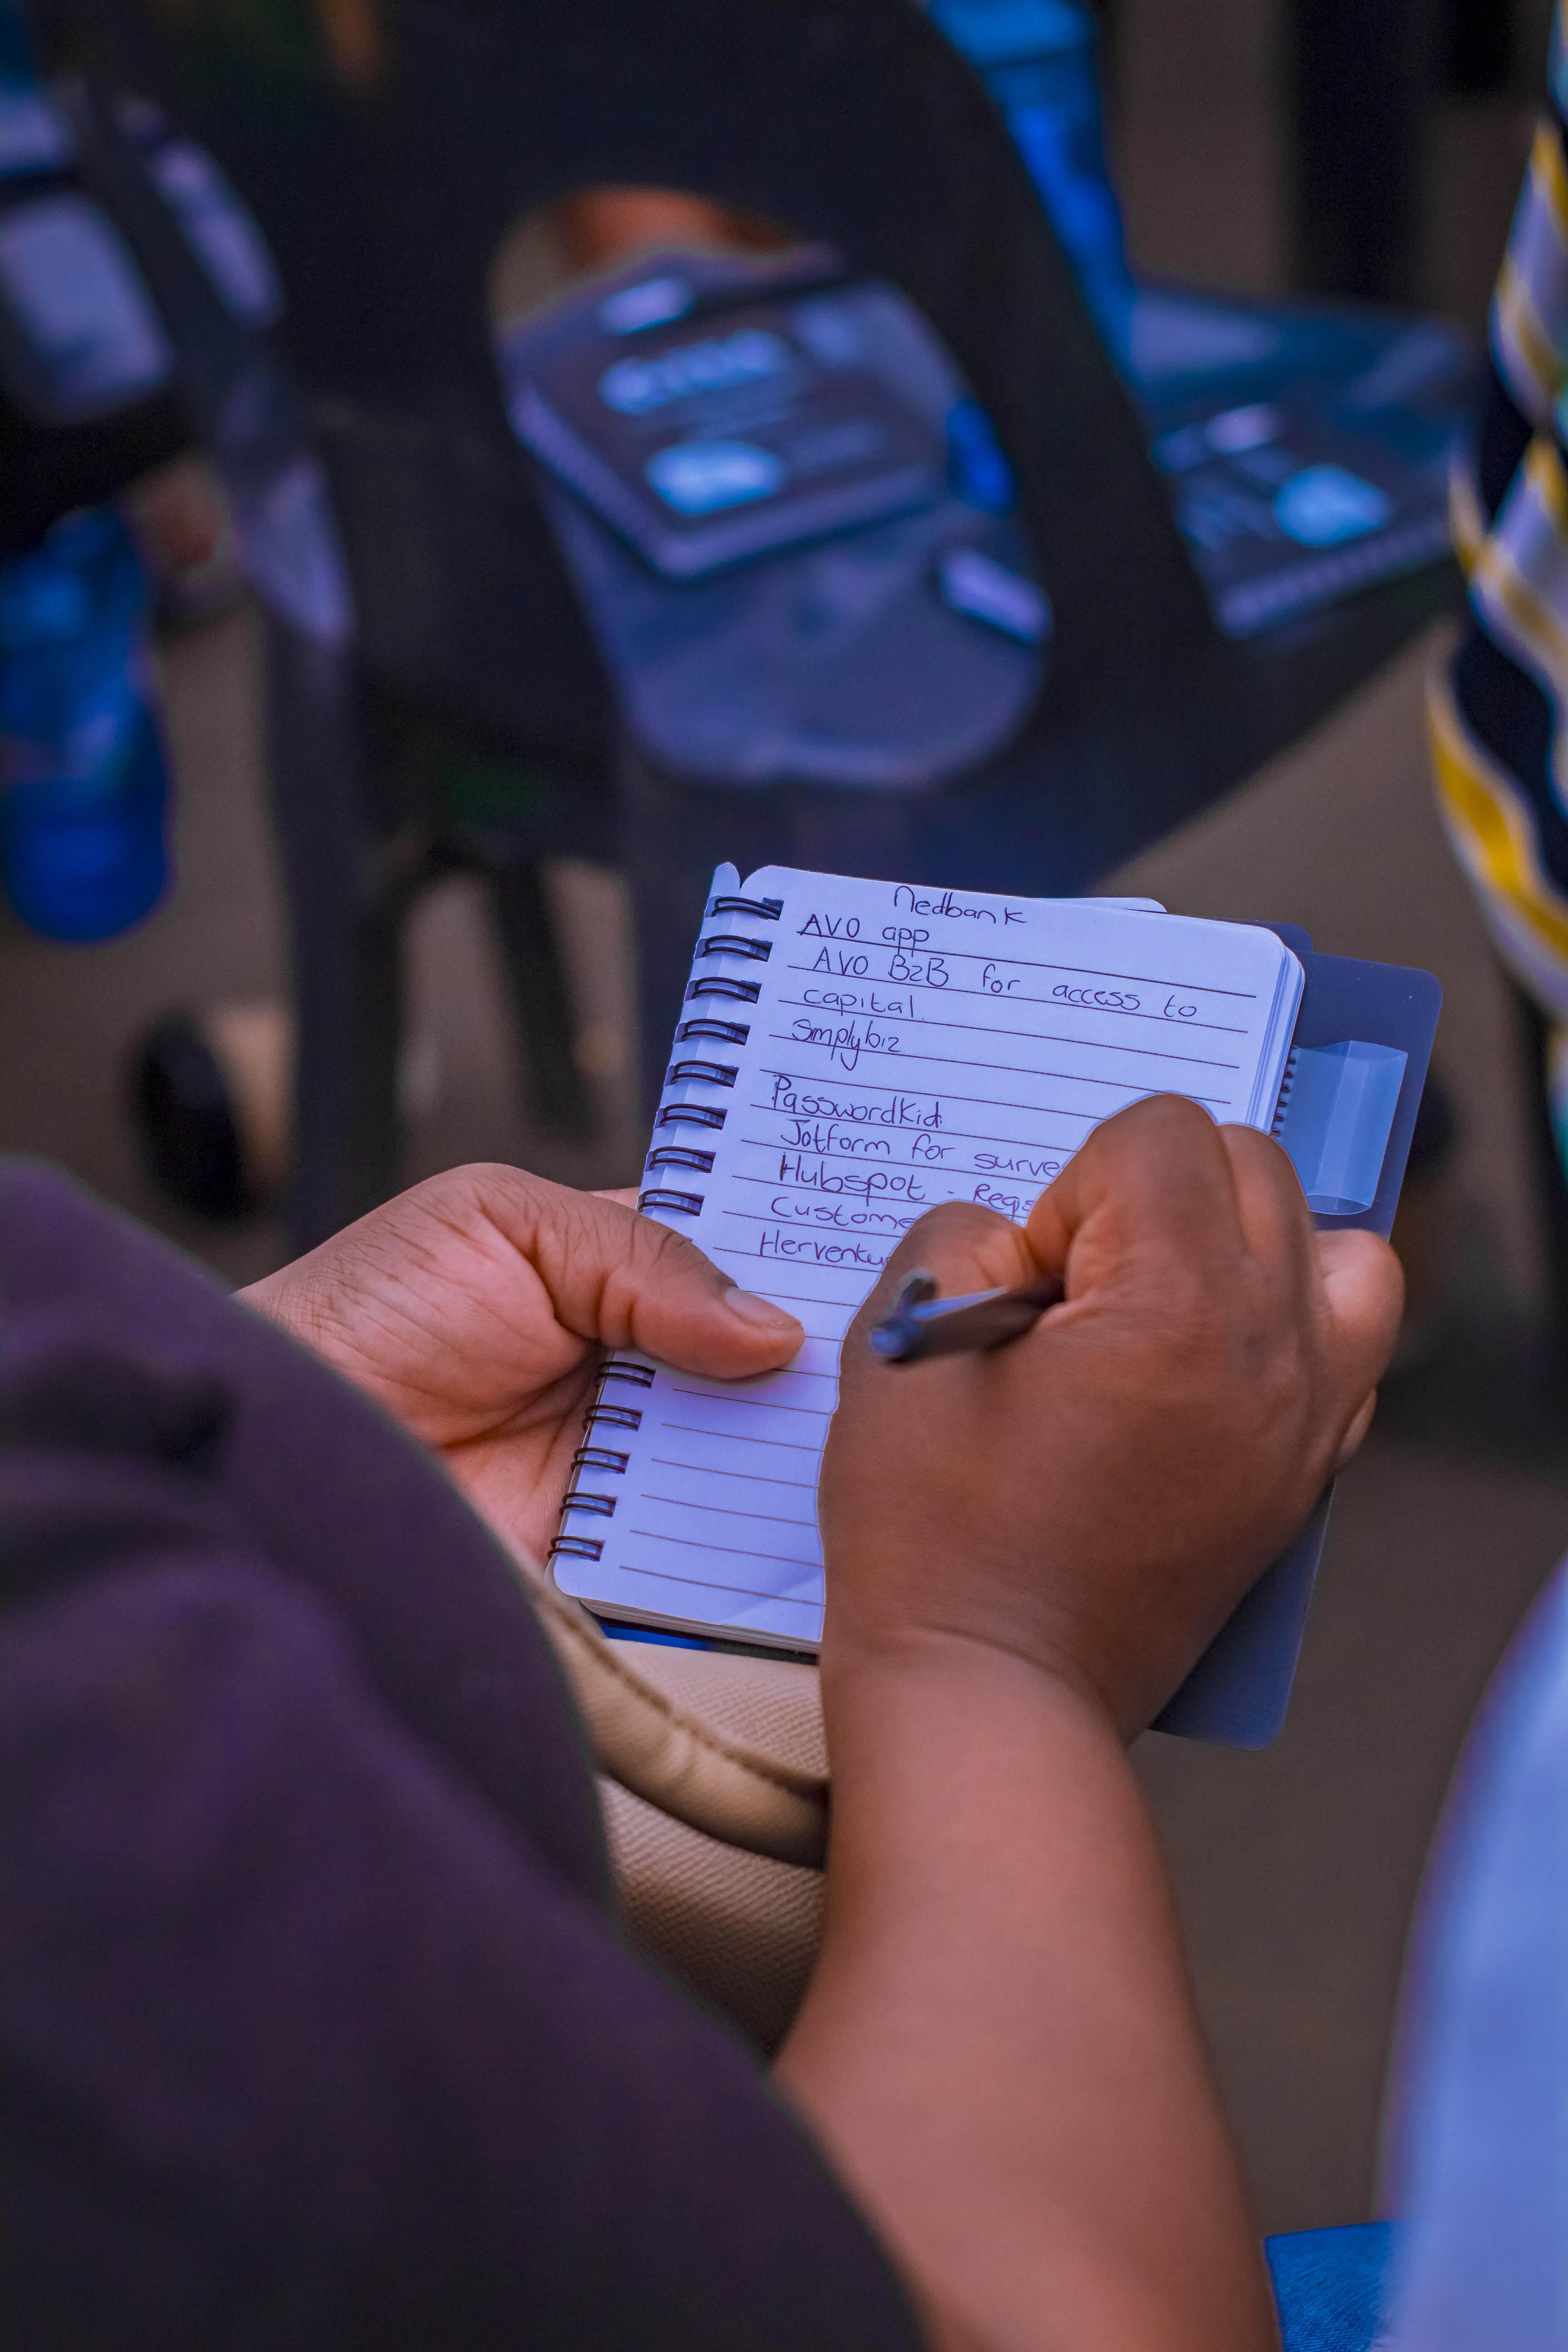 Nedbank
AVO app
AVO B2B for access to
capital
Smplybiz
PasswordKid
Jotform for surve
Hubspot - Regs
Custome
Herventu